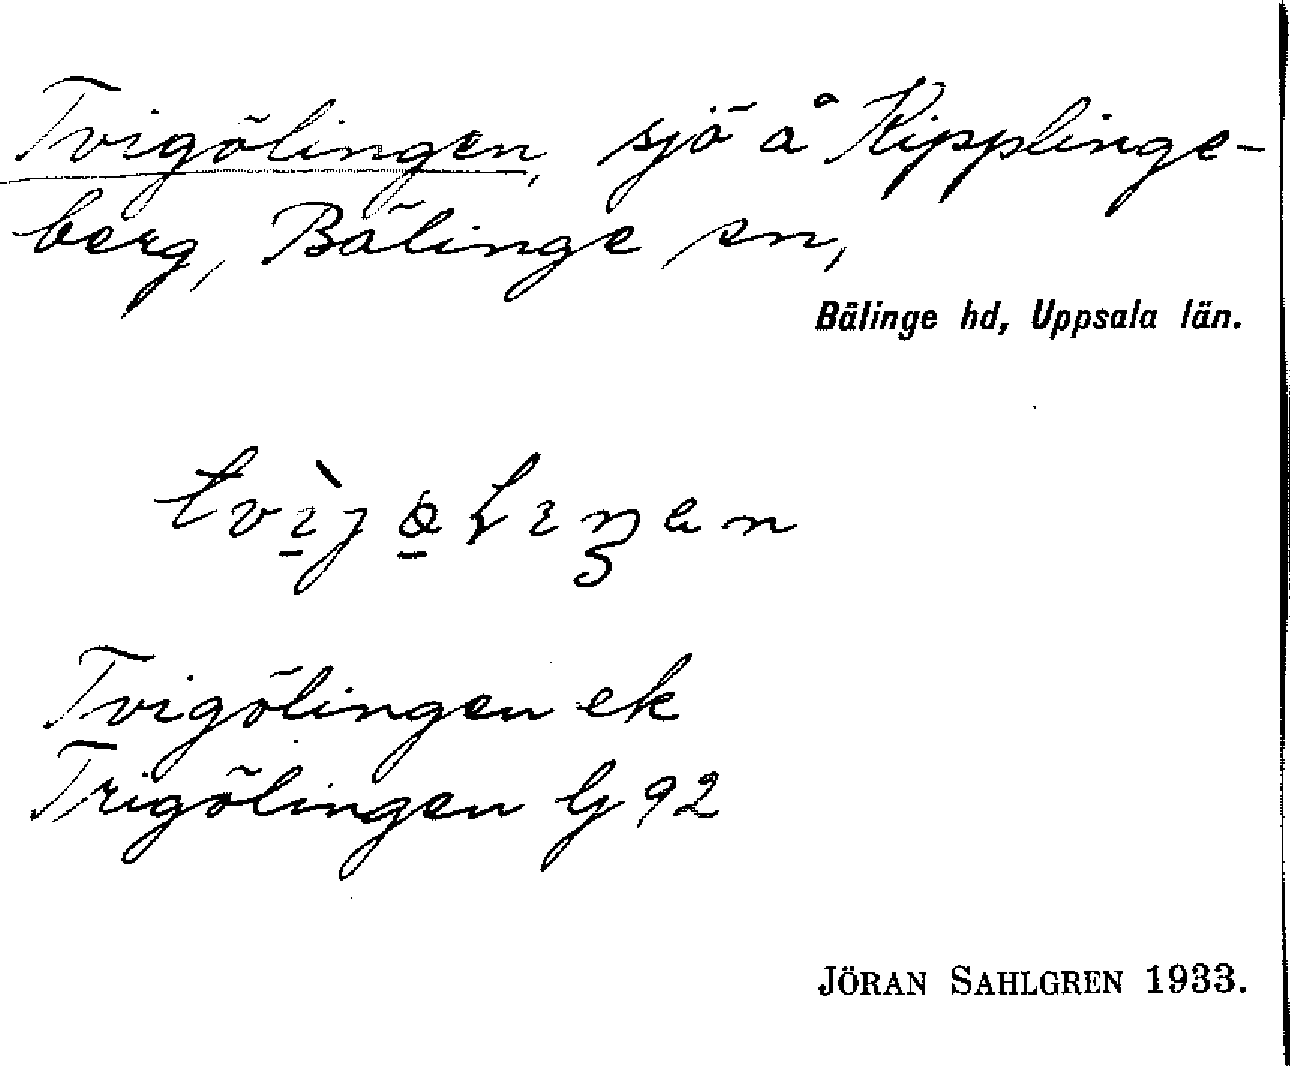 Tvigölingen, sjö å Kipplinge-
berg, Bälinge sn,
Bälinge hd, Uppsala län.
Tvigölingen ek
Trigölingen Lg 92
JÖRAN SAHLGREN 1933.